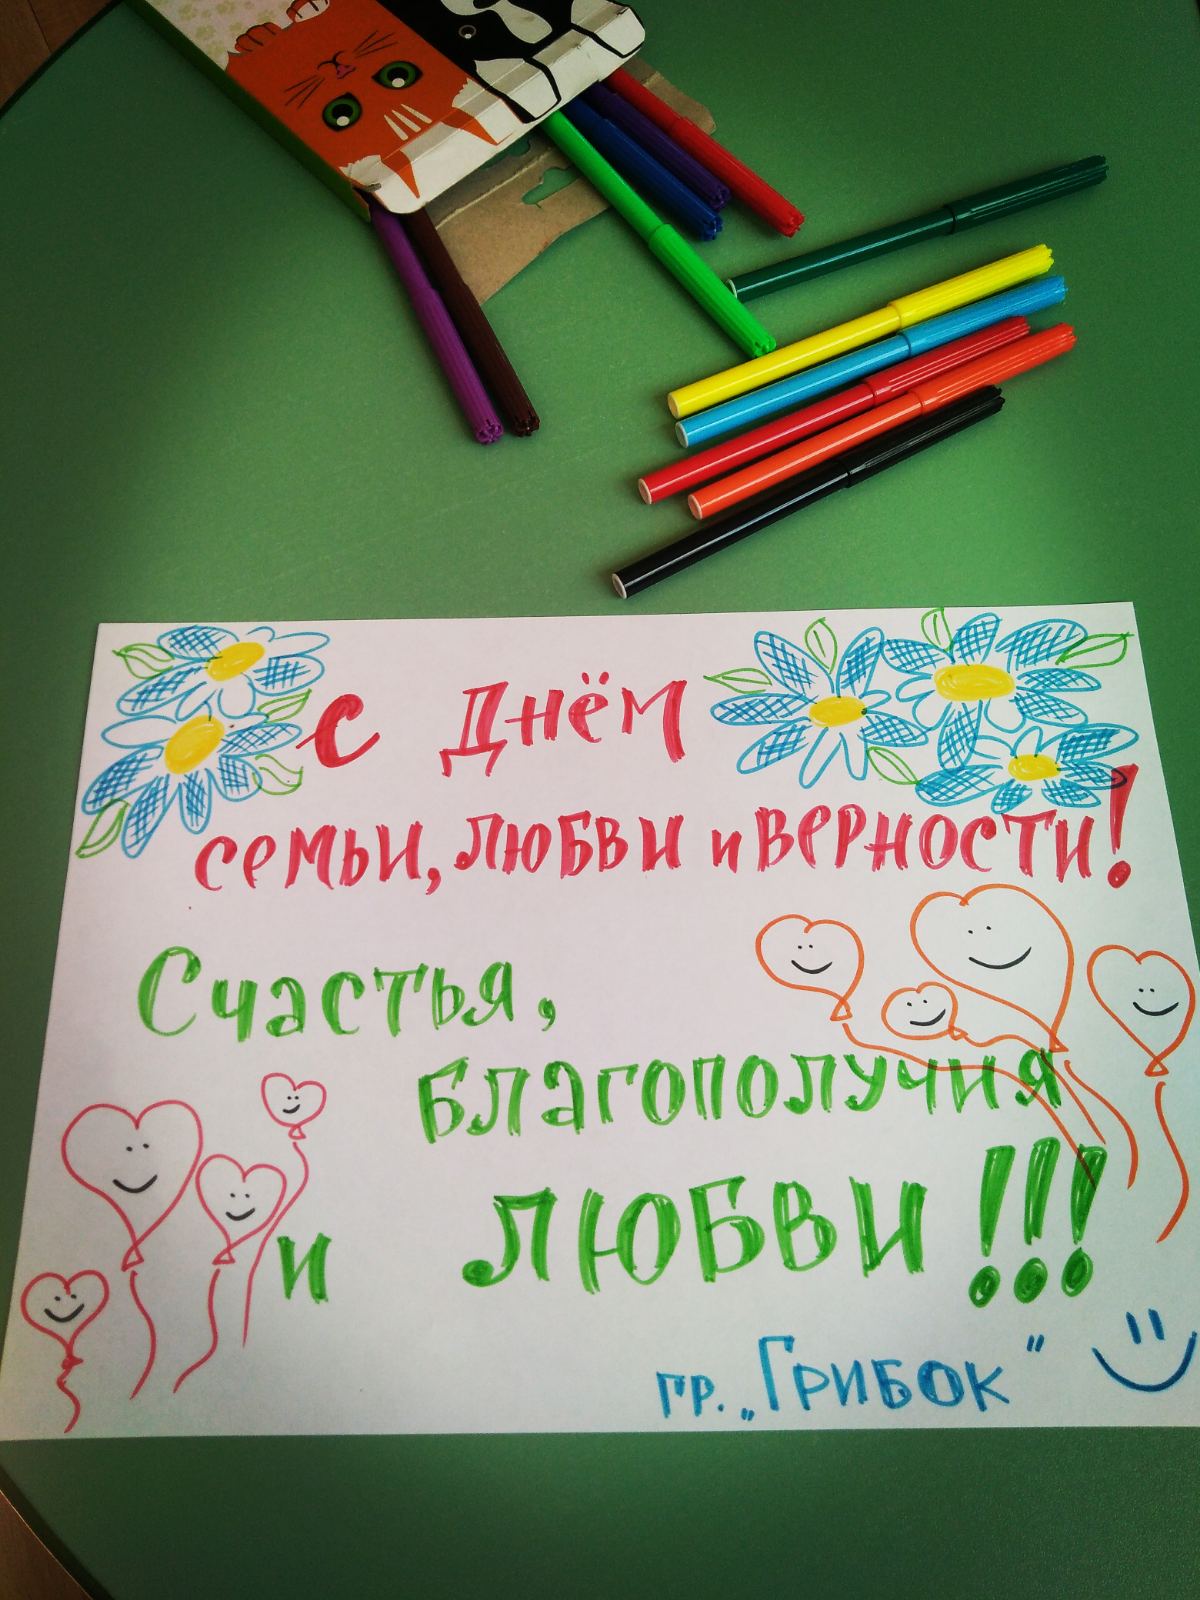 С ДНЁМ
СЕМЬИ, ЛЮБВИ И ВЕРНОСТИ!
Счастья,
БЛАГОПОЛУЧИЯ
И ЛЮБВИ!!!
гр. „Грибок"